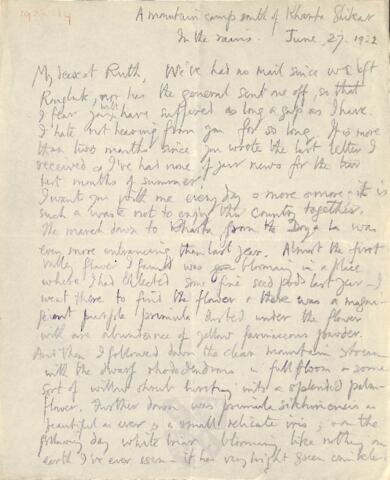 A mountain camp south of Kharta Shikar
In the rains. June 27. 1922
My dearest Ruth, We've had no mail since we left
Rongbuk, nor has the general sent one off, so that
I fear you will have suffered as long a gap as I have.
I hate not hearing from you for so long. It is more
than two months since you wrote the last letter I
received & I've had none of your news for the two
best months of summer.
I want you with me every day & more & more – it is
such a waste not to enjoy this country together.
The march down to Kharta from the Doya La was
even more entrancing than last year. Almost the first
valley flower I found was blooming in a place
where I had collected some fine seed pods last year – I
went there to find the flower & there was a magni-
ficent purple primula dusted under the flower
with an abundance of yellow farinaceous powder.
And then I followed down the clean mountain stream
with the dwarf rhododendrons in full bloom & some
sort of willow shrub bursting into a splendid palm-
flower. Further down was primula sikkimensis as
beautiful as ever & a small delicate iris; & on the
following day white briar blooming like nothing on
earth I've ever seen – it has very bright green